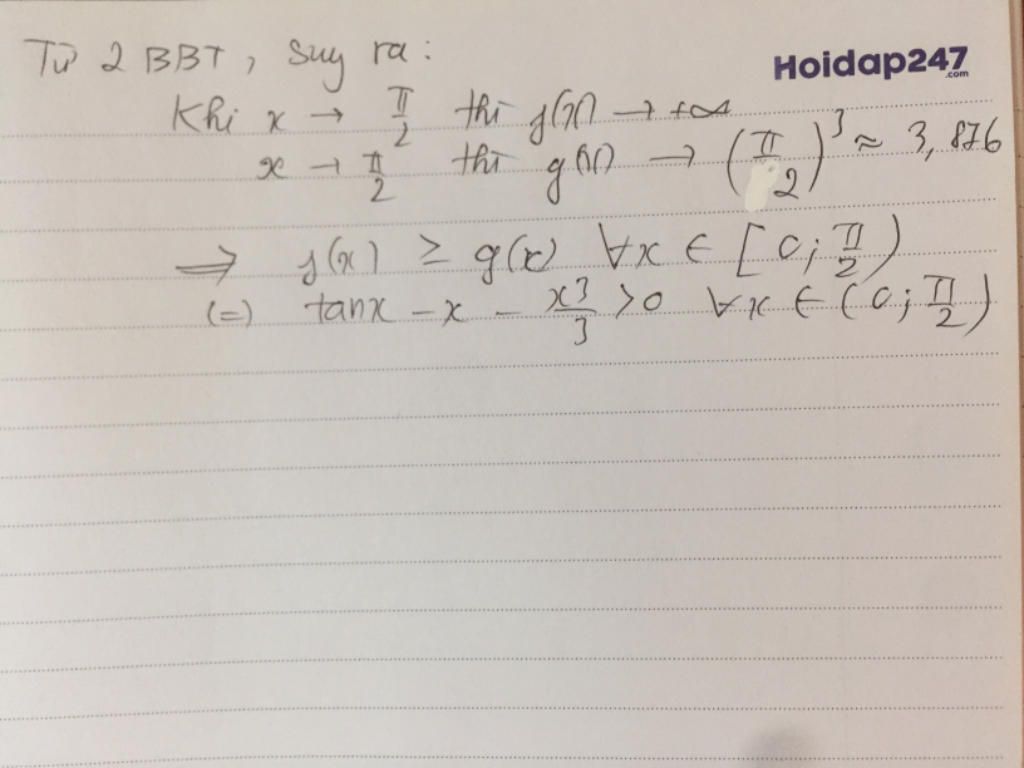 Từ 2 BBT, suy ra:
Hoidap247
.com
Khi x → π/2 thì f(x) → +∞
x → π/2 thì g(x) → (π/2)³ ≈ 3,876
⟹ f(x) ≥ g(x) ∀x ∈ [0; π/2)
(=) tanx - x - x³/3 > 0 ∀x ∈ (0; π/2)